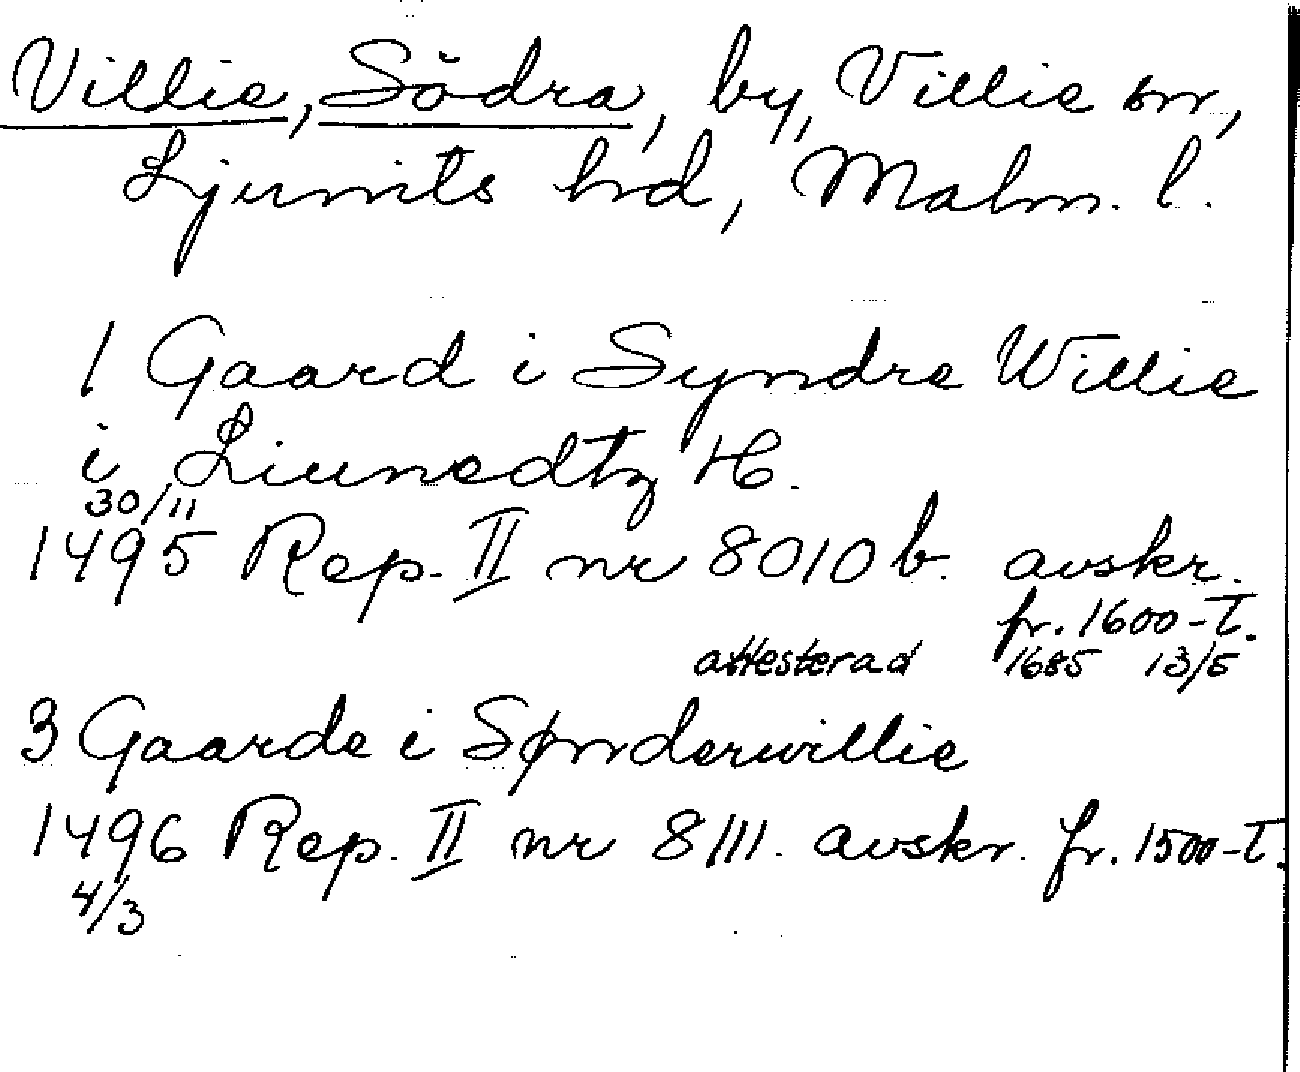 Villie, Södra, by, Villie sn,
Ljunits hd, Malm. l.
1 Gaard i Syndre Willie
i Liunedtz H.
30/11
1495 Rep. II nr 8010 b. avskr.
fr. 1600-T.
attesterad 1685 13/5
3 Gaarde i Sønderwillie
1496 Rep. II nr 8111. avskr. fr. 1500-T.
4/3